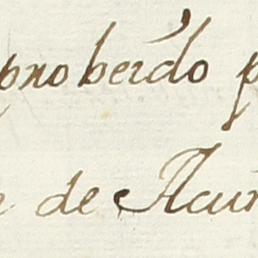 proberdo p
de Acuñ